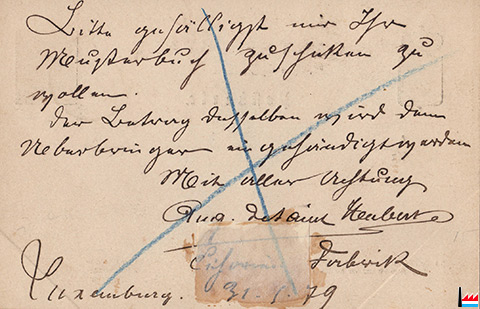 Bitte gefälligst mir Ihr
Musterbuch zuschicken zu
wollen.
Der Betrag desselben wird dem
Ueberbringer eingehändigt werden
Mit aller Achtung
Fabrik
Luxemburg. 31. 79